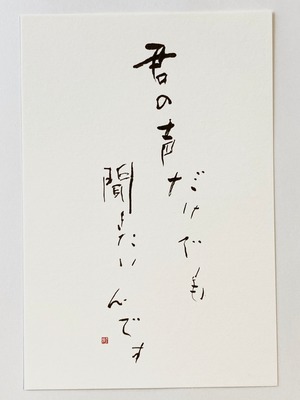 君の声
だけでも
聞きたい
んです